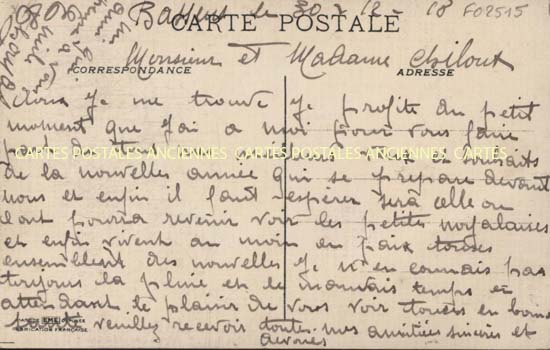 Bassens le 30 - 12 - 18
FO2515
CARTE POSTALE
Monsieur et Madame Chiloux
CORRESPONDANCE
ADRESSE
je me trouve je profite du petit
moment que j'ai a moi pour vous faire
part de tous mes
CARTES POSTALES ANCIENNES CARTES POSTALES ANCIENNES CARTES
de la nouvelles année qui se prepare devant
nous et enfin il faut esperer sera celle ou
dont pourra revenir voir les petites noyalaises
et enfin vivent au moin en paix toutses
ensembleet des nouvelles je n'en connais pas
toujours la pluie et le mauvais temps en
attendant le plaisir de vous voir toutes en bonne
veuillez recevois toutes mes amitiées sincères et
devoués
MARQUE EME
FABRICATION FRANÇAISE